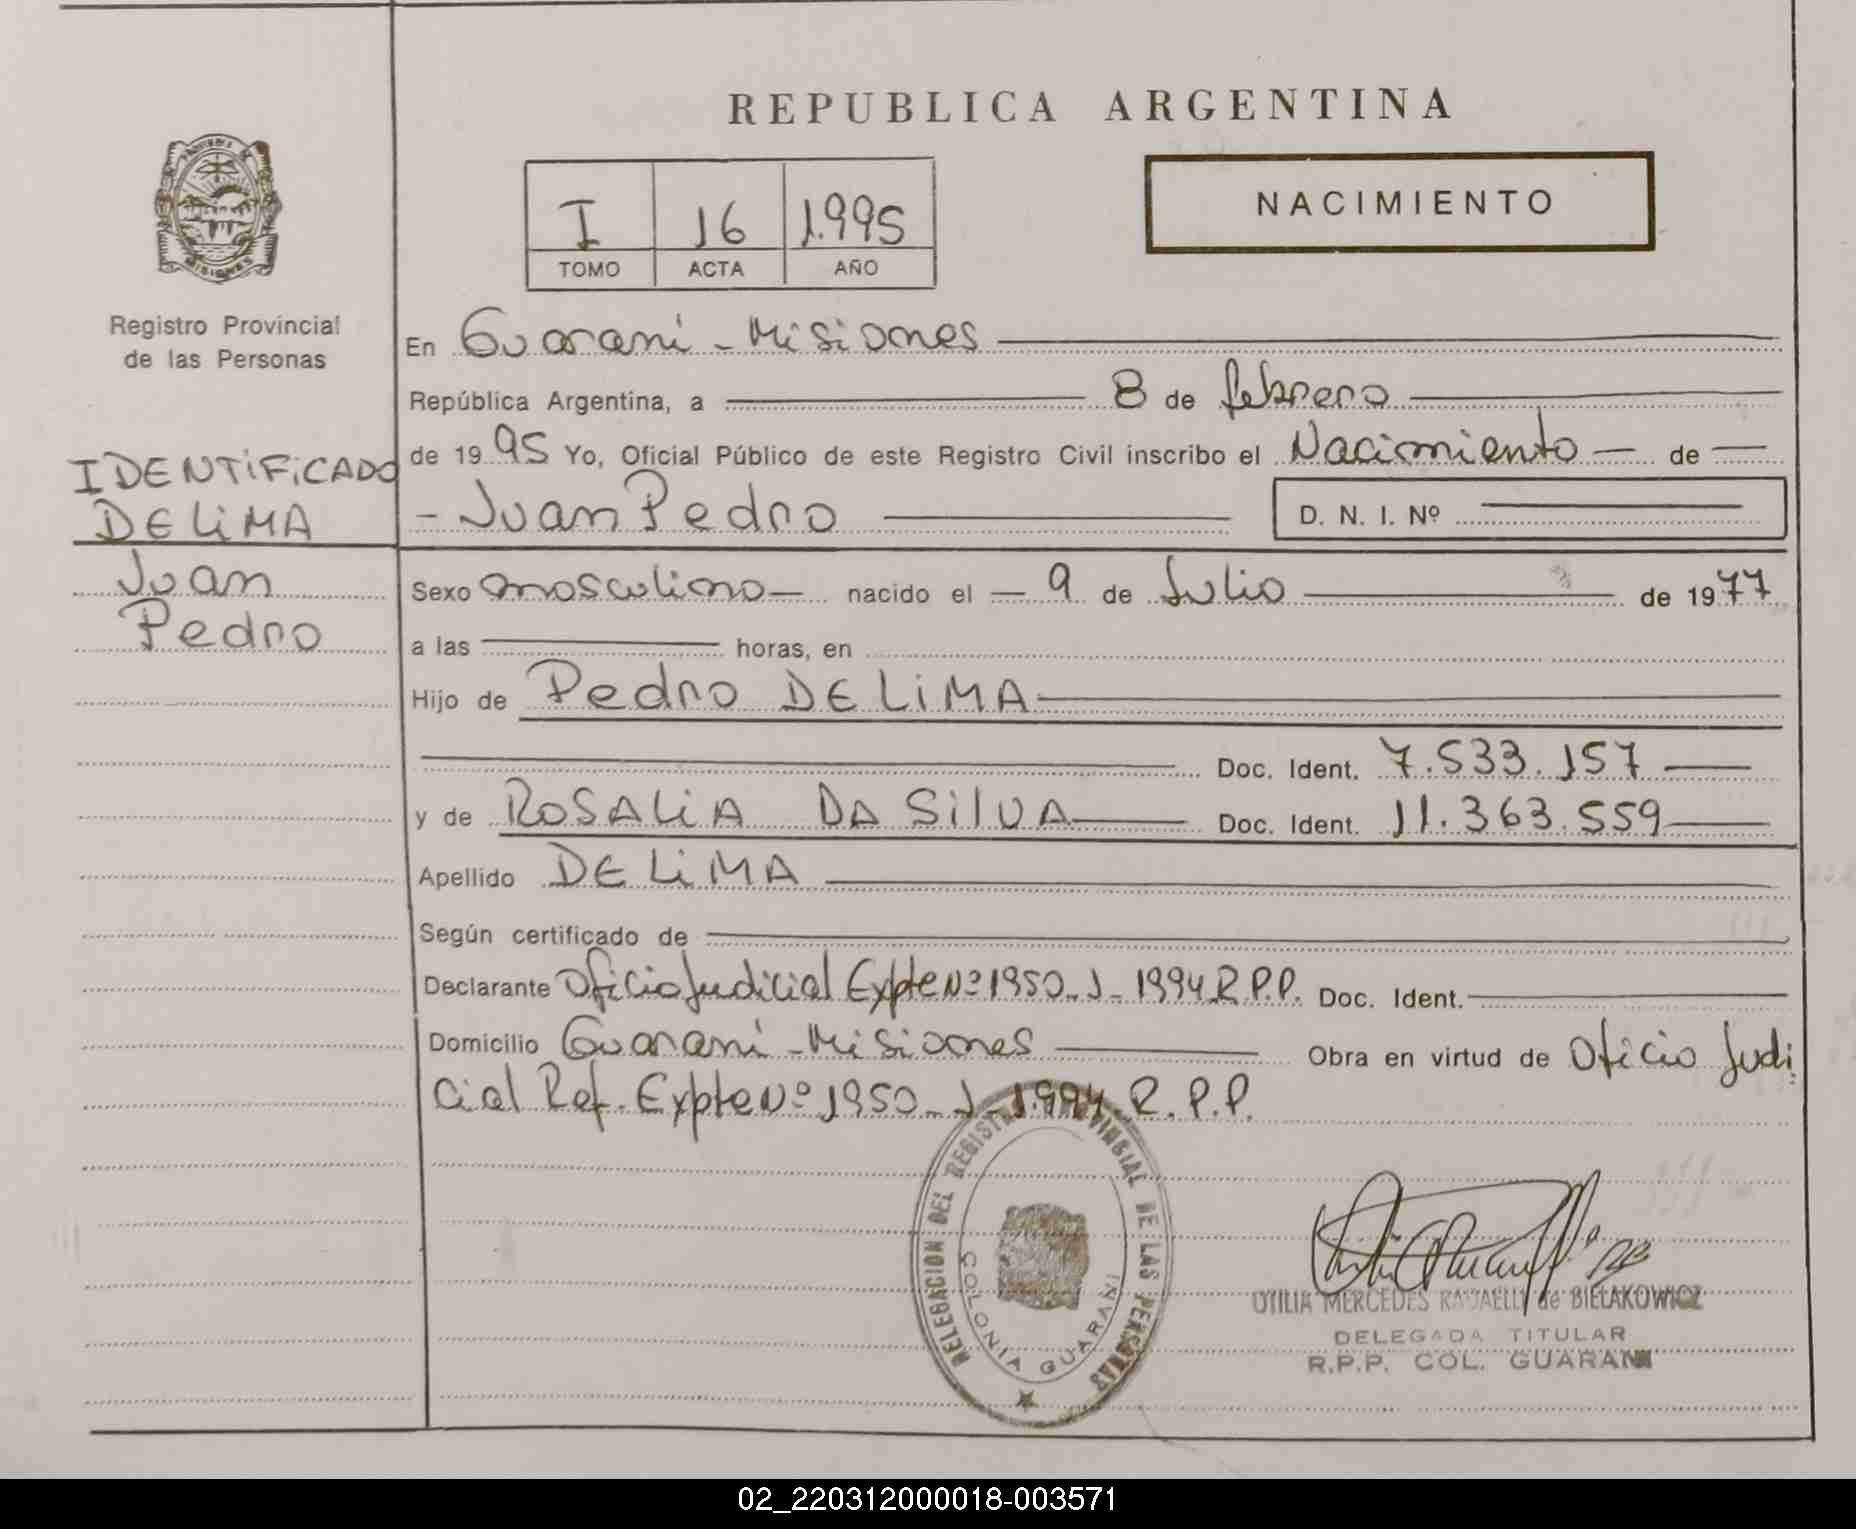 REPUBLICA ARGENTINA
I 16 1.995
TOMO ACTA AÑO
NACIMIENTO
MISIONES
Registro Provincial
de las Personas
IDENTIFICADO
DE LIMA
Juan
Pedro
En Guarani - Misiones
República Argentina, a 8 de febrero
de 1995 Yo, Oficial Público de este Registro Civil inscribo el Nacimiento de
- Juan Pedro D. N. I. Nº
Sexo masculino nacido el 9 de Julio de 1977
a las horas, en
Hijo de Pedro DE LIMA
Doc. Ident. 7.533.157
y de ROSALIA DA SILVA Doc. Ident. 11.363.559
Apellido DE LIMA
Según certificado de
Declarante Oficio Judicial Expte Nº 1950-J-1994 R.P.P. Doc. Ident.
Domicilio Guarani - Misiones Obra en virtud de Oficio Judi
cial Ref. Expte Nº 1950-J-1.994.R.P.P.
DELEGACION DEL REGISTRO PROVINCIAL DE LAS PERSONAS
COLONIA GUARANI
OTILIA MERCEDES de BIELAKOWICZ
DELEGADA TITULAR
R.P.P. COL. GUARANI
02_220312000018-003571